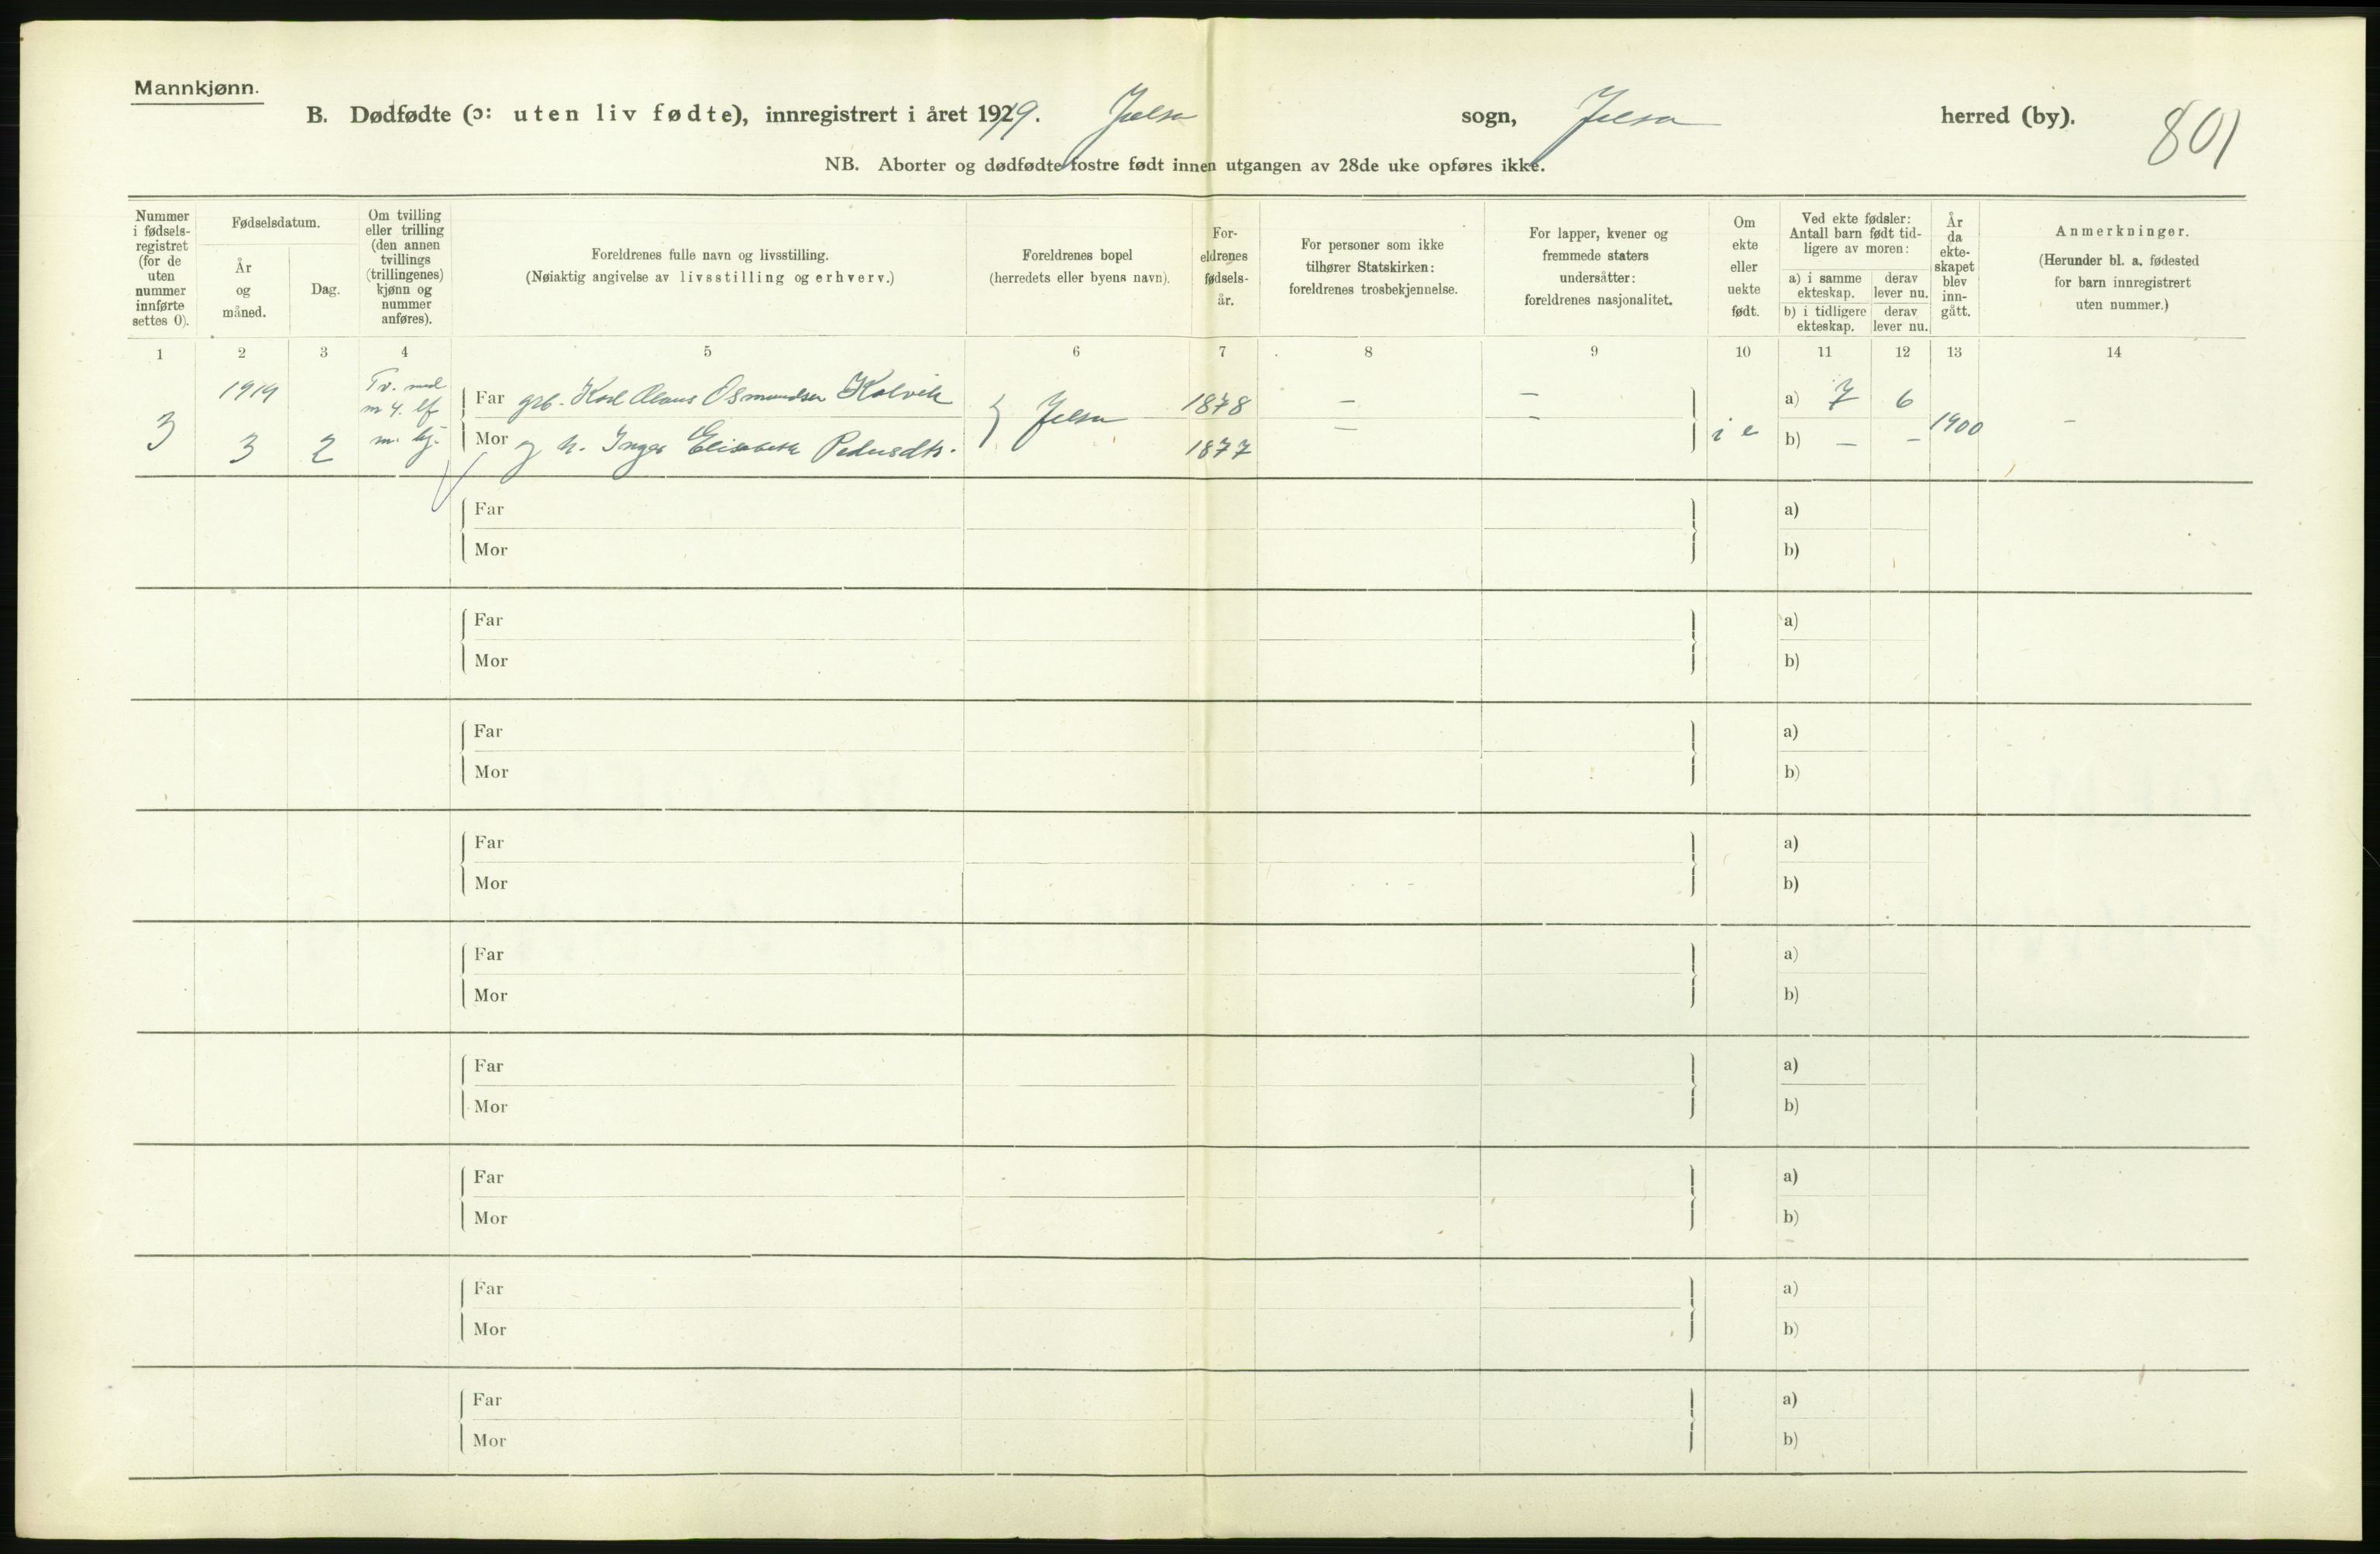 Mannkjønn.
B. Dødfødte (ɔ: uten liv fødte), innregistrert i året 1919. Jelsa sogn, Jelsa herred (by).
801
NB. Aborter og dødfødte fostre født innen utgangen av 28de uke opføres ikke.
Nummer
i fødsels-
registret
(for de
uten
nummer
innførte
settes 0).
Fødselsdatum.
År
og
måned.
Dag.
Om tvilling
eller trilling
(den annen
tvillings
(trillingenes)
kjønn og
nummer
anføres).
Foreldrenes fulle navn og livsstilling.
(Nøiaktig angivelse av livsstilling og erhverv.)
Foreldrenes bopel
(herredets eller byens navn).
For-
eldrenes
fødsels-
år.
For personer som ikke
tilhører Statskirken:
foreldrenes trosbekjennelse.
For lapper, kvener og
fremmede staters
undersåtter:
foreldrenes nasjonalitet.
Om
ekte
eller
uekte
født.
Ved ekte fødsler:
Antall barn født tid-
ligere av moren:
a) i samme
ekteskap.
derav
lever nu.
b) i tidligere
ekteskap.
derav
lever nu.
År
da
ekte-
skapet
blev
inn-
gått.
Anmerkninger.
(Herunder bl. a. fødested
for barn innregistrert
uten nummer.)
1 2 3 4 5 6 7 8 9 10 11 12 13 14
3
1919
3 2
Tv. med
m 4. lf
m. kj.
Far grb. Karl Olaus Osmundsen Kolvik
Mor og h. Inger Elisabeth Pedersdtr.
Jelsa
1878
1877
—
—
—
—
i e
a) 7 6
b) — —
1900
—
Far
Mor
a)
b)
Far
Mor
a)
b)
Far
Mor
a)
b)
Far
Mor
a)
b)
Far
Mor
a)
b)
Far
Mor
a)
b)
Far
Mor
a)
b)
Far
Mor
a)
b)
Far
Mor
a)
b)